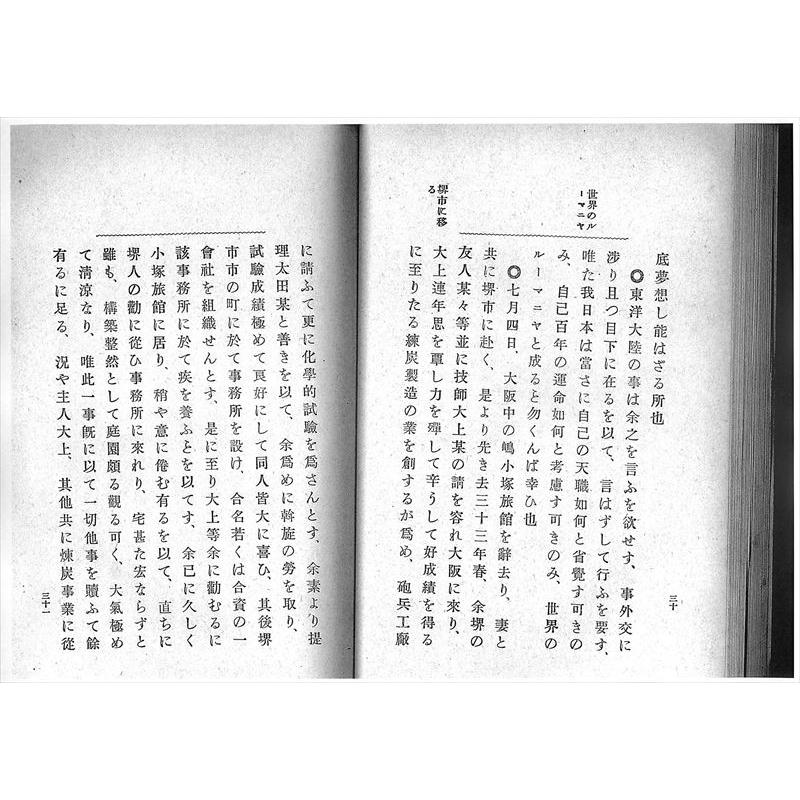 世界のル
ーマニヤ
堺市に移
る
底夢想し能はざる所也
◎東洋大陸の事は余之を言ふを欲せす、事外交に
渉り且つ目下に在るを以て、言はずして行ふを要す、
唯た我日本は當さに自己の天職如何と省覺す可きの
み、自己百年の運命如何と考慮す可きのみ、世界の
ルーマニヤと成ると勿くんば幸ひ也
◎七月四日、大阪中の嶋小塚旅館を辭去り、妻と
共に堺市に赴く、是より先き去三十三年春、余堺の
友人某々等並に技師大上某の請を容れ大阪に來り、
大上連年思を覃し力を殫して辛うして好成績を得る
に至りたる練炭製造の業を創するが爲め、砲兵工廠
三十
に請ふて更に化學的試驗を爲さんとす、余素より提
理太田某と善きを以て、余爲めに斡旋の勞を取り、
試驗成績極めて良好にして同人皆大に喜ひ、其後堺
市市の町に於て事務所を設け、合名若くは合資の一
會社を組織せんとす、是に至り大上等余に勸むるに
該事務所に於て疾を養ふとを以てす、余已に久しく
小塚旅館に居り、稍や意に倦む有るを以て、直ちに
堺人の勸に從ひ事務所に來れり、宅甚た宏ならずと
雖も、構築整然として庭園頗る觀る可く、大氣極め
て清涼なり、唯此一事旣に以て一切他事を贖ふて餘
有るに足る、況や主人大上、其他共に煉炭事業に從
三十一